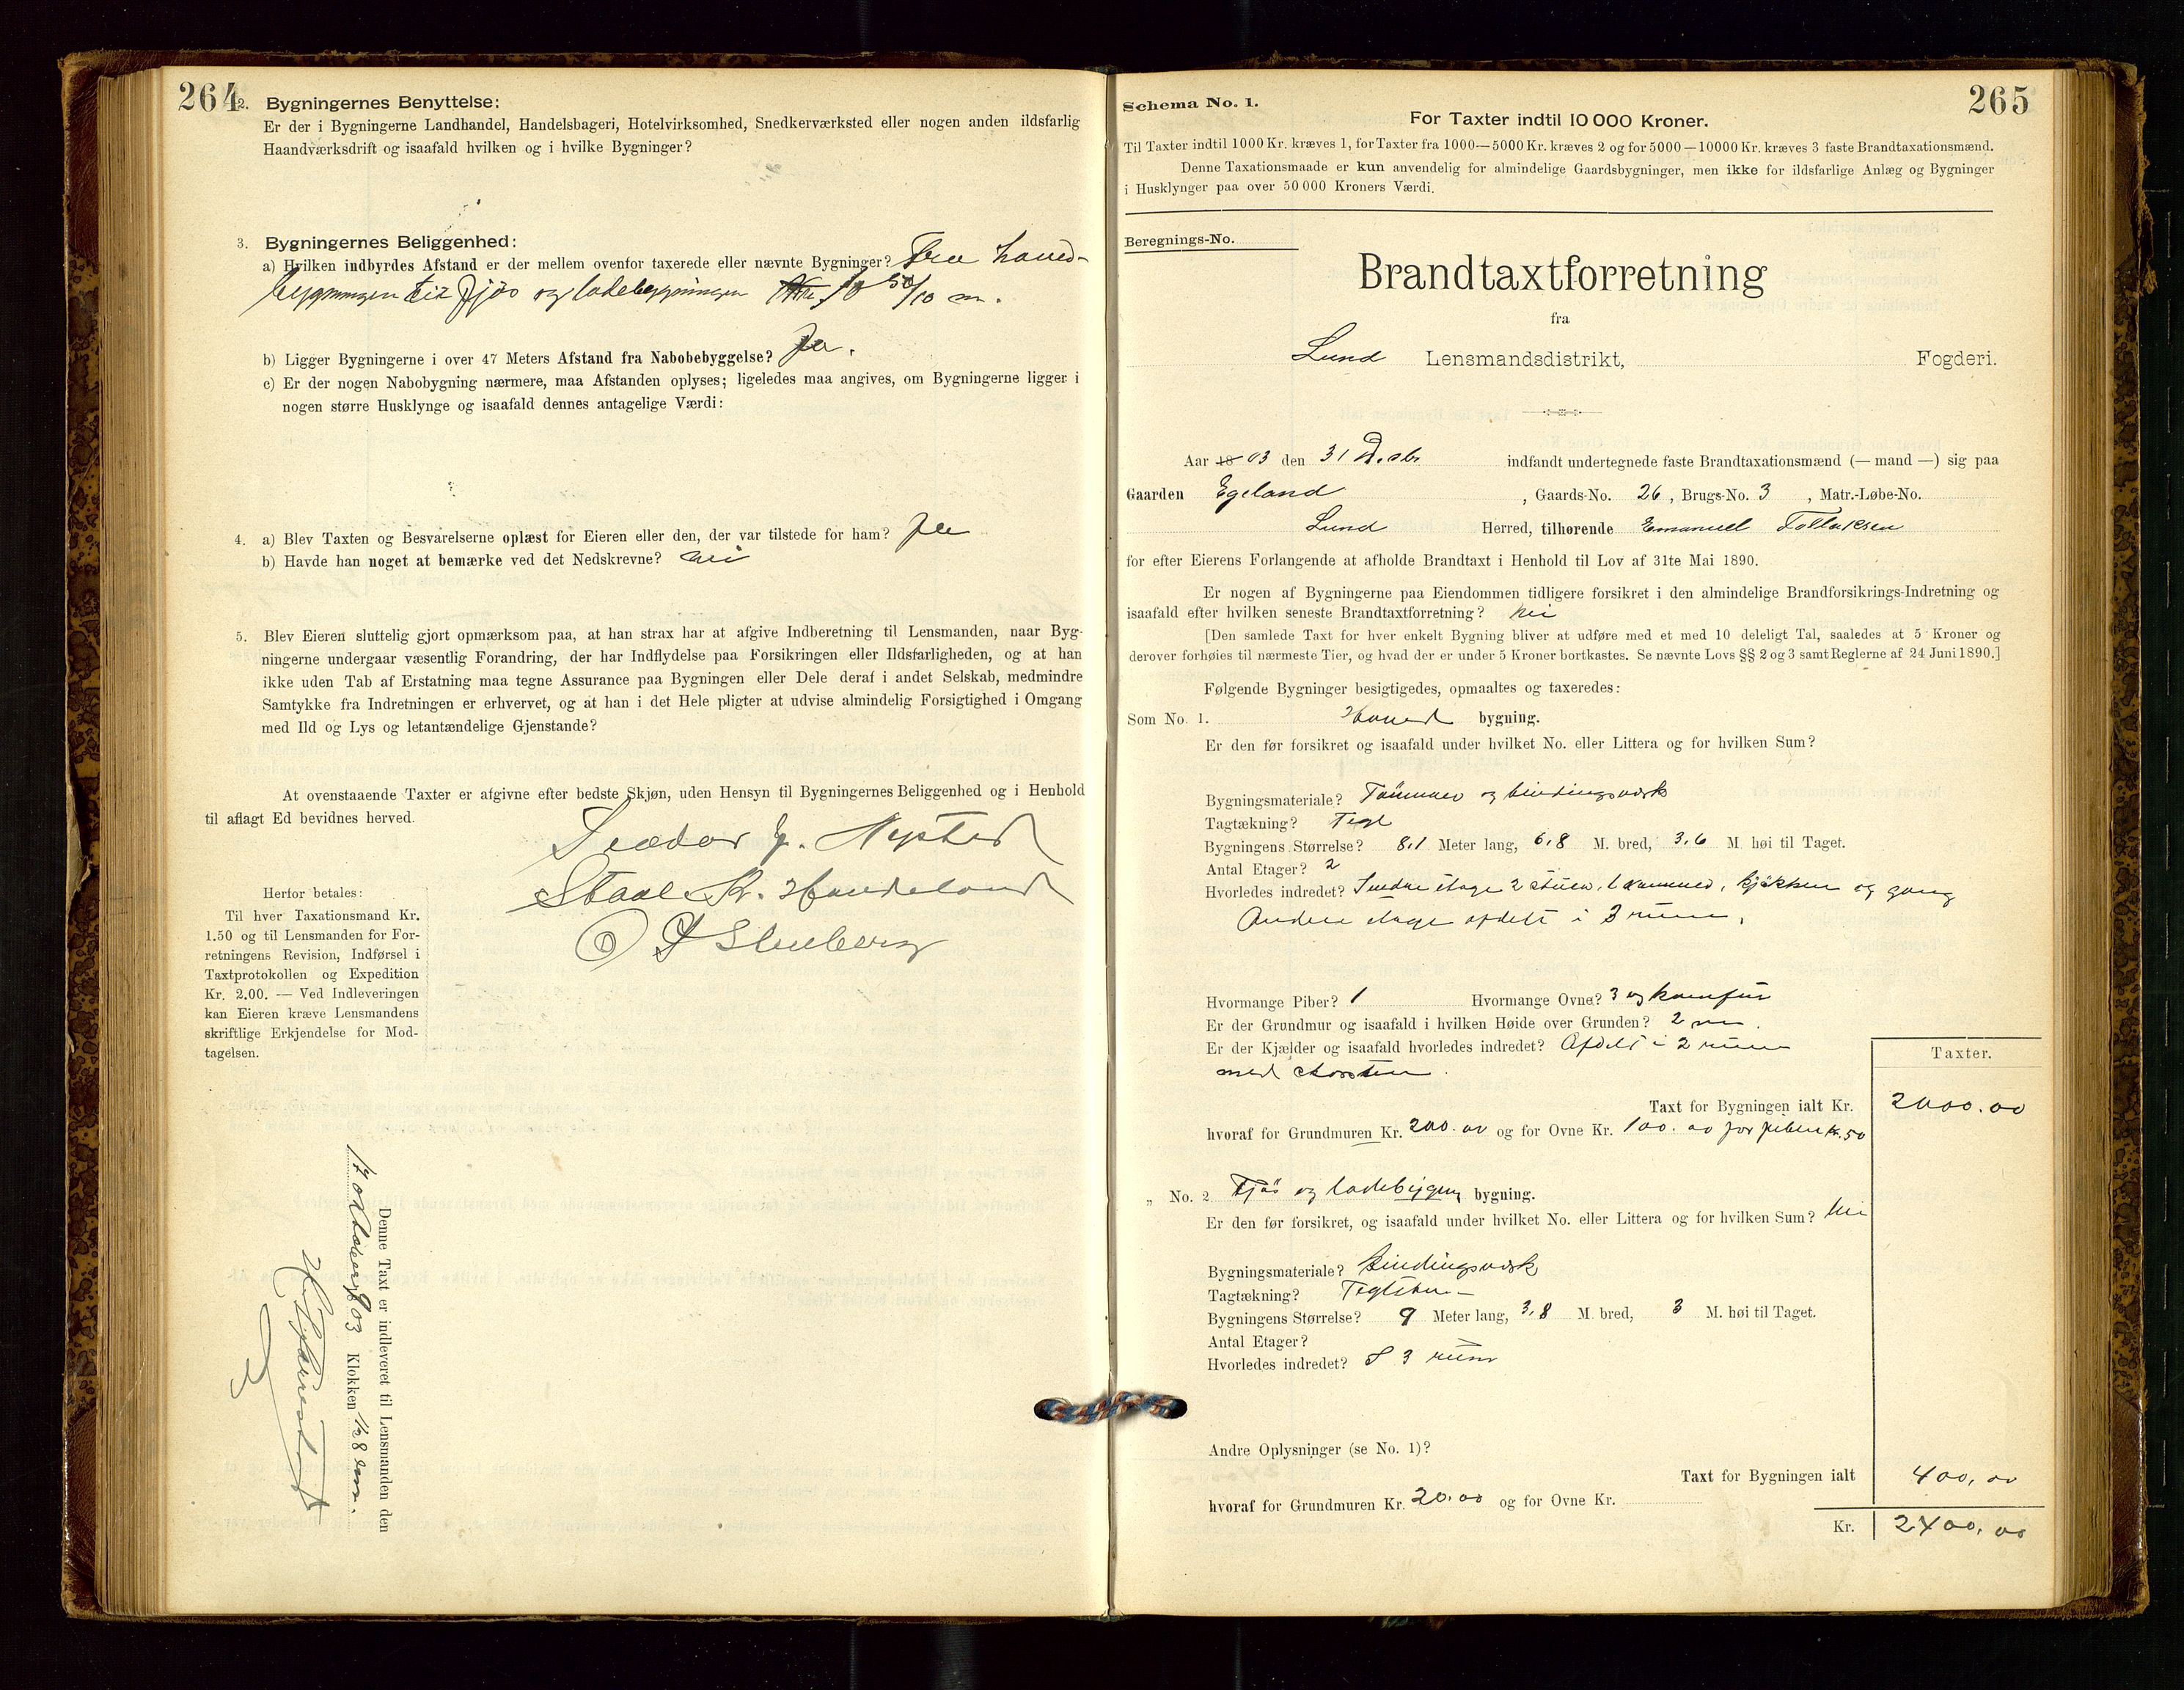 264
2. Bygningernes Benyttelse:
Er der i Bygningerne Landhandel, Handelsbageri, Hotelvirksomhed, Snedkerværksted eller nogen anden ildsfarlig
Haandværksdrift og isaafald hvilken og i hvilke Bygninger?
3. Bygningernes Beliggenhed:
a) Hvilken indbyrdes Afstand er der mellem ovenfor taxerede eller nævnte Bygninger? Fra Hoved-
bygningen til fjøs og ladebygningen 50/10 m.
b) Ligger Bygningerne i over 47 Meters Afstand fra Nabobebyggelse? Ja.
c) Er der nogen Nabobygning nærmere, maa Afstanden oplyses; ligeledes maa angives, om Bygningerne ligger i
nogen større Husklynge og isaafald dennes antagelige Værdi:
4. a) Blev Taxten og Besvarelserne oplæst for Eieren eller den, der var tilstede for ham? Ja
b) Havde han noget at bemærke ved det Nedskrevne? Nei
5. Blev Eieren sluttelig gjort opmærksom paa, at han strax har at afgive Indberetning til Lensmanden, naar Byg-
ningerne undergaar væsentlig Forandring, der har Indflydelse paa Forsikringen eller Ildsfarligheden, og at han
ikke uden Tab af Erstatning maa tegne Assurance paa Bygningen eller Dele deraf i andet Selskab, medmindre
Samtykke fra Indretningen er erhvervet, og at han i det Hele pligter at udvise almindelig Forsigtighed i Omgang
med Ild og Lys og letantændelige Gjenstande?
At ovenstaaende Taxter er afgivne efter bedste Skjøn, uden Hensyn til Bygningernes Beliggenhed og i Henhold
til aflagt Ed bevidnes herved.
Teodor J. Nysted
Staal Kr. Haudeland
Herfor betales:
Til hver Taxationsmand Kr.
1.50 og til Lensmanden for For-
retningens Revision, Indførsel i
Taxtprotokollen og Expedition
Kr. 2.00. — Ved Indleveringen
kan Eieren kræve Lensmandens
skriftlige Erkjendelse for Mod-
tagelsen.
Denne Taxt er indleveret til Lensmanden den
17 Oktober 1903 Klokken 1/2 8 em.
265
Schema No. 1.
For Taxter indtil 10 000 Kroner.
Til Taxter indtil 1000 Kr. kræves 1, for Taxter fra 1000—5000 Kr. kræves 2 og for 5000—10000 Kr. kræves 3 faste Brandtaxationsmænd.
Denne Taxationsmaade er kun anvendelig for almindelige Gaardsbygninger, men ikke for ildsfarlige Anlæg og Bygninger
i Husklynger paa over 50 000 Kroners Værdi.
Beregnings-No.
Brandtaxtforretning
fra
Lund Lensmandsdistrikt, Fogderi.
Aar 18 03 den 31 indfandt undertegnede faste Brandtaxationsmænd (— mand —) sig paa
Gaarden Egeland, Gaards-No. 26, Brugs-No. 3, Matr.-Løbe-No.
Lund Herred, tilhørende Emanuel Tollaksen
for efter Eierens Forlangende at afholde Brandtaxt i Henhold til Lov af 31te Mai 1890.
Er nogen af Bygningerne paa Eiendommen tidligere forsikret i den almindelige Brandforsikrings-Indretning og
isaafald efter hvilken seneste Brandtaxtforretning? Nei
[Den samlede Taxt for hver enkelt Bygning bliver at udføre med et med 10 deleligt Tal, saaledes at 5 Kroner og
derover forhøies til nærmeste Tier, og hvad der er under 5 Kroner bortkastes. Se nævnte Lovs §§ 2 og 3 samt Reglerne af 24 Juni 1890.]
Følgende Bygninger besigtigedes, opmaaltes og taxeredes:
Som No. 1. Hoved bygning.
Er den før forsikret og isaafald under hvilket No. eller Littera og for hvilken Sum?
Bygningsmateriale? Tømmer og bindingsverk
Tagtækning? Tegl
Bygningens Størrelse? 8,1 Meter lang, 6,8 M. bred, 3,6 M. høi til Taget.
Antal Etager? 2
Hvorledes indredet? etage 2 stuer, 1 kammer, kjøkken og gang
Anden etage afdelt i 3 rum.
Hvormange Piber? 1 Hvormange Ovne? 3 og komfur
Er der Grundmur og isaafald i hvilken Høide over Grunden? 2 m.
Er der Kjælder og isaafald hvorledes indredet? Afdelt i 2 rum
med skorsten.
Taxter.
Taxt for Bygningen ialt Kr. 2000.00
hvoraf for Grundmuren Kr. 200.00 og for Ovne Kr. 100.00 for piben kr. 50
„ No. 2 Fjøs og ladebygning bygning.
Er den før forsikret, og isaafald under hvilket No. eller Littera og for hvilken Sum? Nei
Bygningsmateriale? Bindingsverk
Tagtækning? Teglsten
Bygningens Størrelse? 9 Meter lang, 3,8 M. bred, 3 M. høi til Taget.
Antal Etager?
Hvorledes indredet? I 3 rum
Andre Oplysninger (se No. 1)?
Taxt for Bygningen ialt 400,00
hvoraf for Grundmuren Kr. 20.00 og for Ovne Kr.
Kr. 2400,00